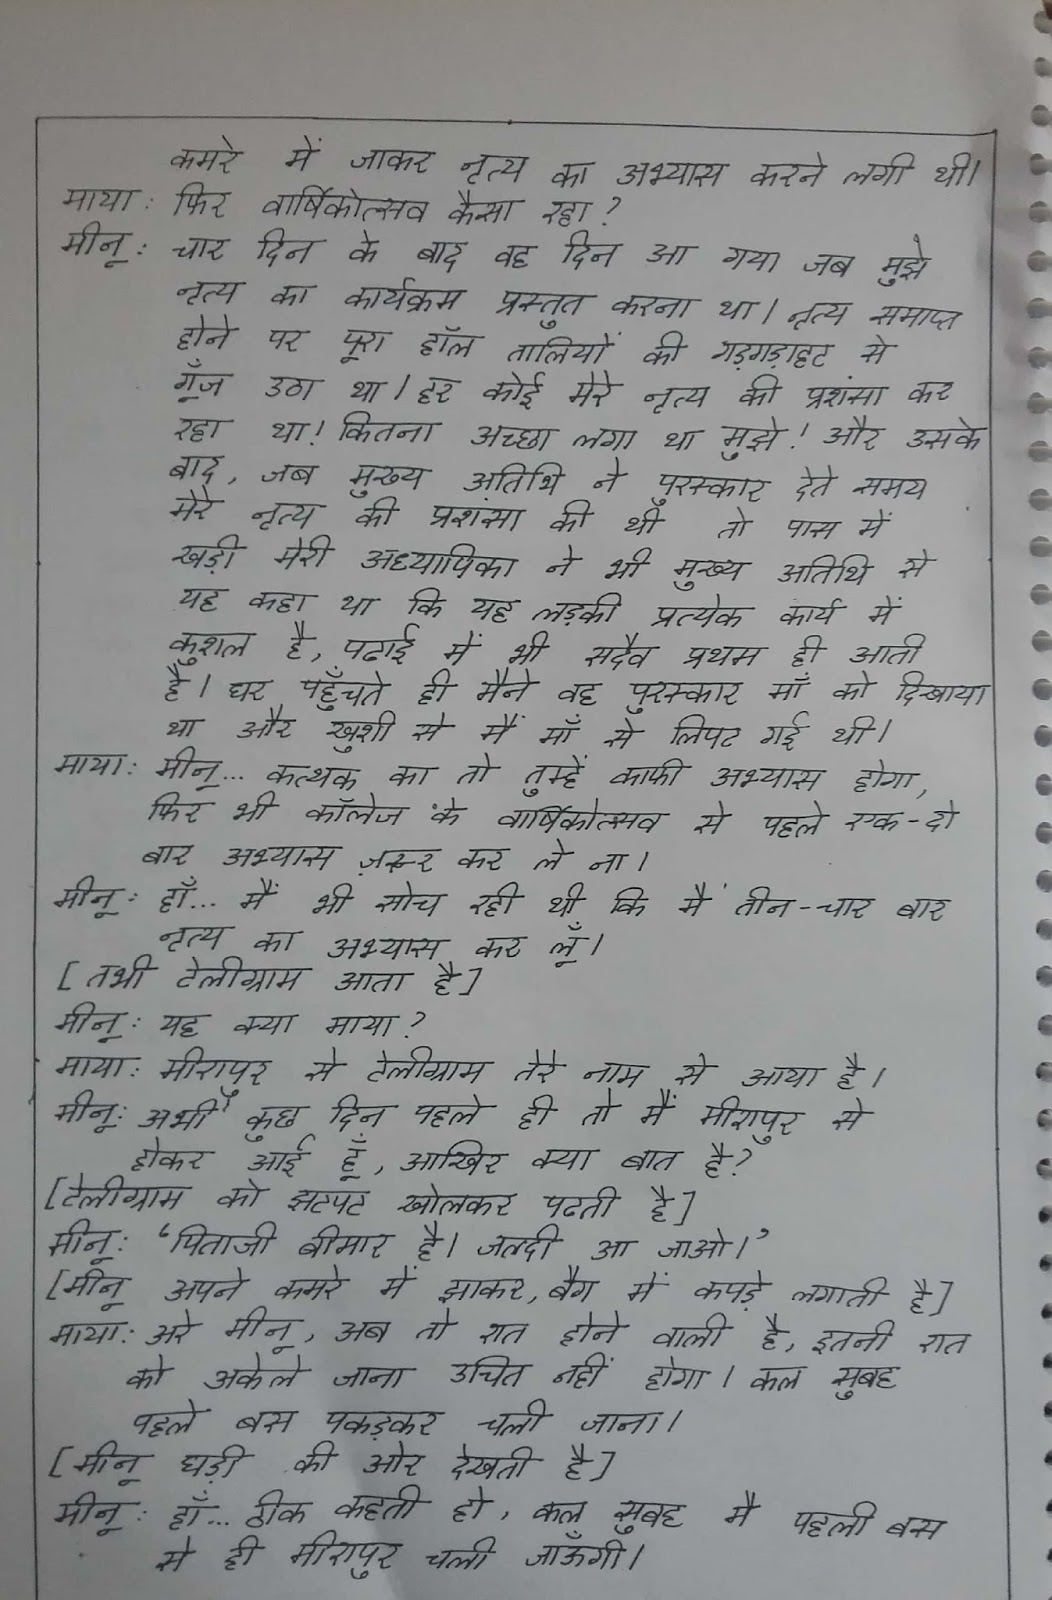 कमरे में जाकर नृत्य का अभ्यास करने लगी थी।
माया: फिर वार्षिकोत्सव कैसा रहा?
मीनू: चार दिन के बाद वह दिन आ गया जब मुझे
नृत्य का कार्यक्रम प्रस्तुत करना था। नृत्य समाप्त
होने पर पूरा हॉल तालियों की गड़गड़ाहट से
गूँज उठा था। हर कोई मेरे नृत्य की प्रशंसा कर
रहा था! कितना अच्छा लगा था मुझे! और उसके
बाद, जब मुख्य अतिथि ने पुरस्कार देते समय
मेरे नृत्य की प्रशंसा की थी तो पास में
खड़ी मेरी अध्यापिका ने भी मुख्य अतिथि से
यह कहा था कि यह लड़की प्रत्येक कार्य में
कुशल है, पढाई में भी सदैव प्रथम ही आती
है। घर पहुँचते ही मैने वह पुरस्कार माँ को दिखाया
था और खुशी से मैं माँ से लिपट गई थी।
माया: मीनू... कत्थक का तो तुम्हें काफी अभ्यास होगा,
फिर भी कॉलेज के वार्षिकोत्सव से पहले एक-दो
बार अभ्यास ज़रूर कर ले ना।
मीनू: हाँ... मैं भी सोच रही थी कि मैं तीन-चार बार
नृत्य का अभ्यास कर लूँ।
[तभी टेलीग्राम आता है]
मीनू: यह क्या माया?
माया: मीरापुर से टेलीग्राम तेरे नाम से आया है।
मीनू: अभी कुछ दिन पहले ही तो मैं मीरापुर से
होकर आई हूँ, आखिर क्या बात है?
[टेलीग्राम को झटपट खोलकर पढती है]
मीनू: 'पिताजी बीमार है। जलदी आ जाओ।'
[मीनू अपने कमरे में झाकर, बैग में कपड़े लगाती है]
माया: अरे मीनू, अब तो रात होने वाली है, इतनी रात
को अकेले जाना उचित नहीं होगा। कल सुबह
पहले बस पकड़कर चली जाना।
[मीनू घड़ी की ओर देखती है]
मीनू: हाँ... ठीक कहती हो, कल सुबह मै पहली बस
से ही मीरापुर चली जाऊँगी।